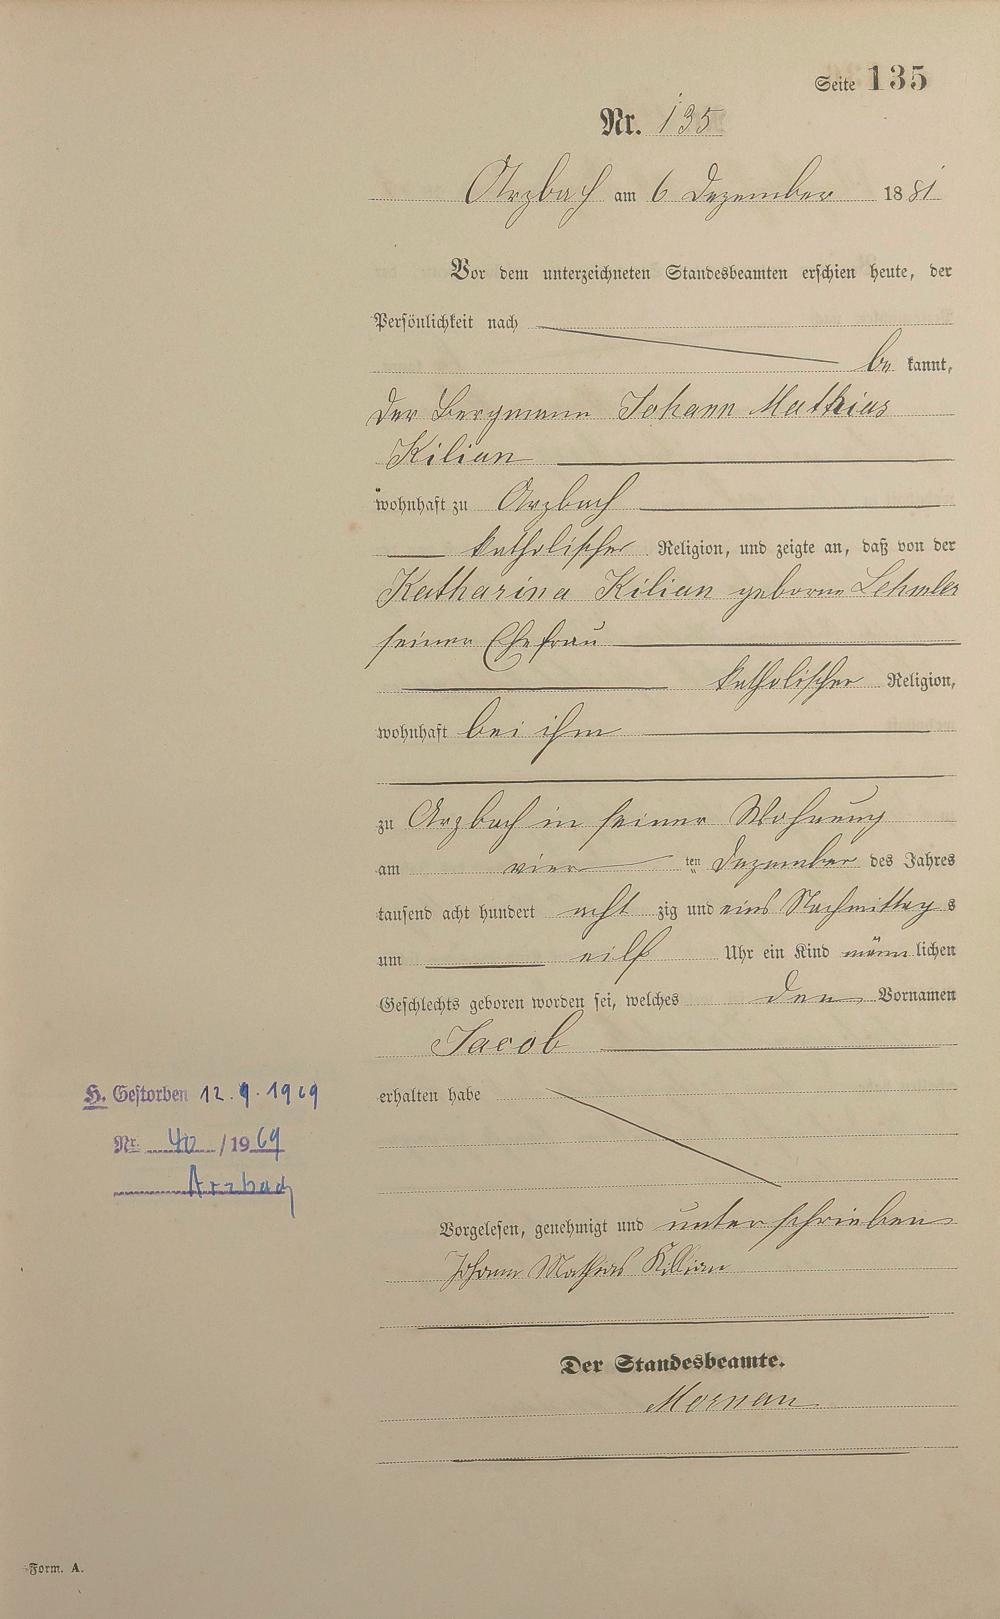 Seite 135
Nr. 135
Arzbach am 6 Dezember 1881
Vor dem unterzeichneten Standesbeamten erschien heute, der
Persönlichkeit nach
be kannt,
der Bergmann Johann Mathias
Kilian
wohnhaft zu Arzbach
katholischer Religion, und zeigte an, daß von der
Katharina Kilian geborne Lehmler
seiner Ehefrau
katholischer Religion,
wohnhaft bei ihm
zu Arzbach in seiner Wohnung
am vier ten Dezember des Jahres
tausend acht hundert acht zig und eins Nachmittag s
um eilf Uhr ein Kind männ lichen
Geschlechts geboren worden sei, welches den Vornamen
Jacob
erhalten habe
H. Gestorben 12.9.1969
Nr. 40 / 1969
Arzbach
Vorgelesen, genehmigt und unterschrieben
Johann Mathias Killian
Der Standesbeamte.
Mornau
Form. A.